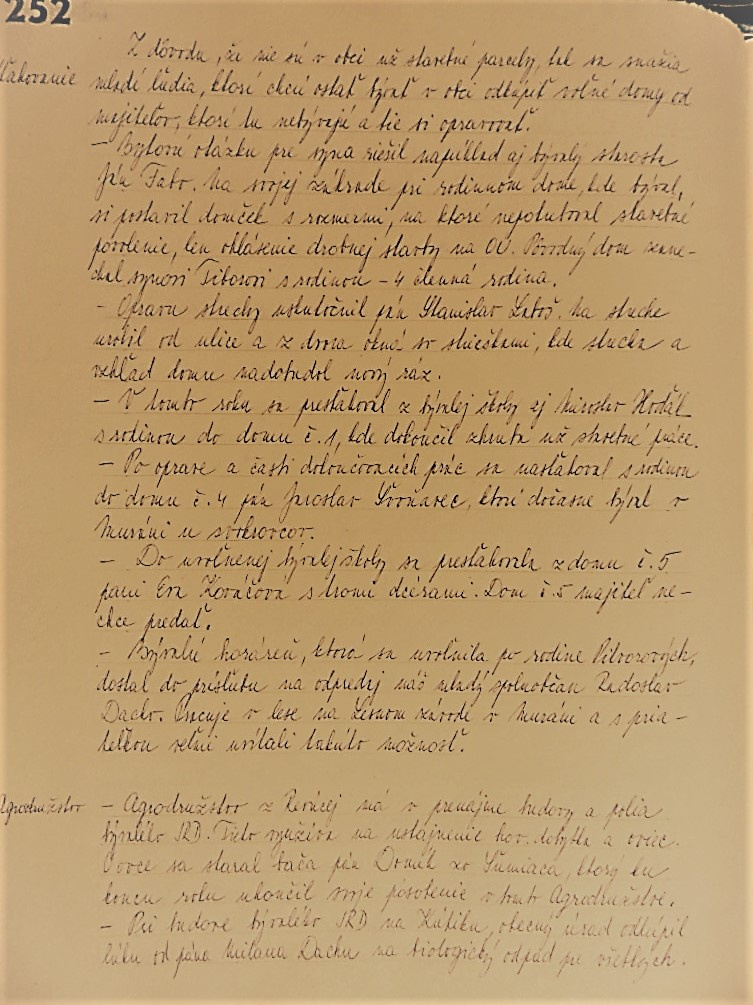 252
Z dôvodu, že nie sú v obci už stavebné parcely, tak sa snažia
sťahovanie mladí ľudia, ktorí chcú ostať bývať v obci odkúpiť voľné domy od
majiteľov, ktorí tu nebývajú a tie si opravovať.
– Bytovú otázku pre syna riešil napríklad aj bývalý starosta
Ján Fabo. Na svojej záhrade pri rodinnom dome, kde býval,
si postavil domček s rozmermi, na ktoré nepotreboval stavebné
povolenie, len ohlásenie drobnej stavby na OÚ. Pôvodný dom zane-
chal synovi Tiborovi s rodinou – 4 členná rodina.
– Opravu strechy uskutočnil pán Stanislav Latoš. Na streche
urobil od ulice a z dvora okná so strieškami, kde strecha a
vzhľad domu nadobudol nový ráz.
– V tomto roku sa presťahoval z bývalej školy aj Miroslav Hodák
s rodinou do domu č. 1, kde dokončil zhruba už stavebné práce.
– Po oprave a časti dokončovacích prác sa nasťahoval s rodinou
do domu č. 4 pán Jaroslav Švoňavec, ktorí dočasne býval v
Muráni u svokrovcov.
– Do uvoľnenej bývalej školy sa presťahovala z domu č. 5
pani Eva Kováčová s troma dcérami. Dom č. 5 majiteľ ne-
chce predať.
– Bývalú horáreň, ktorá sa uvoľnila po rodine Pitvorových,
dostal do prísľubu na odpredaj náš mladý spoluobčan Radoslav
Dacho. Pracuje v lese na Lesnom závode v Muráni a s pria-
teľkou veľmi uvítali takúto možnosť.
Agrodružstvo – Agrodružstvo z Revúcej má v prenájme budovy a polia
bývalého JRD. Tieto využíva na ustajnenie hov. dobytka a oviec.
O ovce sa staral bača pán Domik zo Šumiaca, ktorý ku
koncu roku ukončil svoje pôsobenie v tomto Agrodružstve.
– Pri budove bývalého JRD na Kútiku, obecný úrad odkúpil
lúku od pána Milana Dachu na biologický odpad pre všetkých.